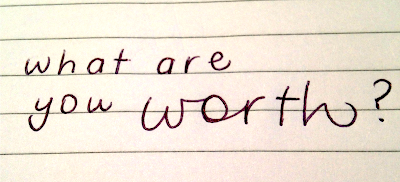 what are
you worth?